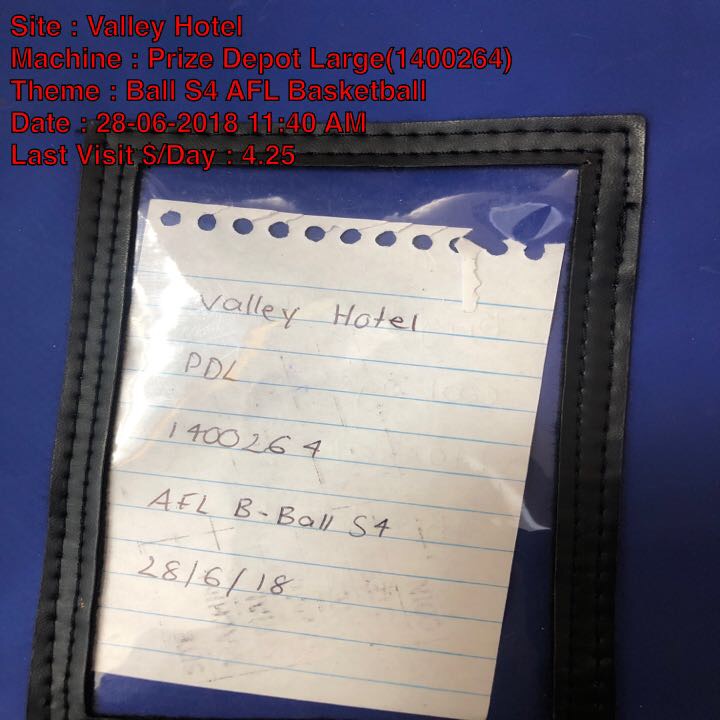 Site : Valley Hotel
Machine : Prize Depot Large(1400264)
Theme : Ball S4 AFL Basketball
Date : 28-06-2018 11:40 AM
Last Visit $/Day : 4.25
Valley Hotel
PDL
1400264
AFL B-Ball S4
28/6/18